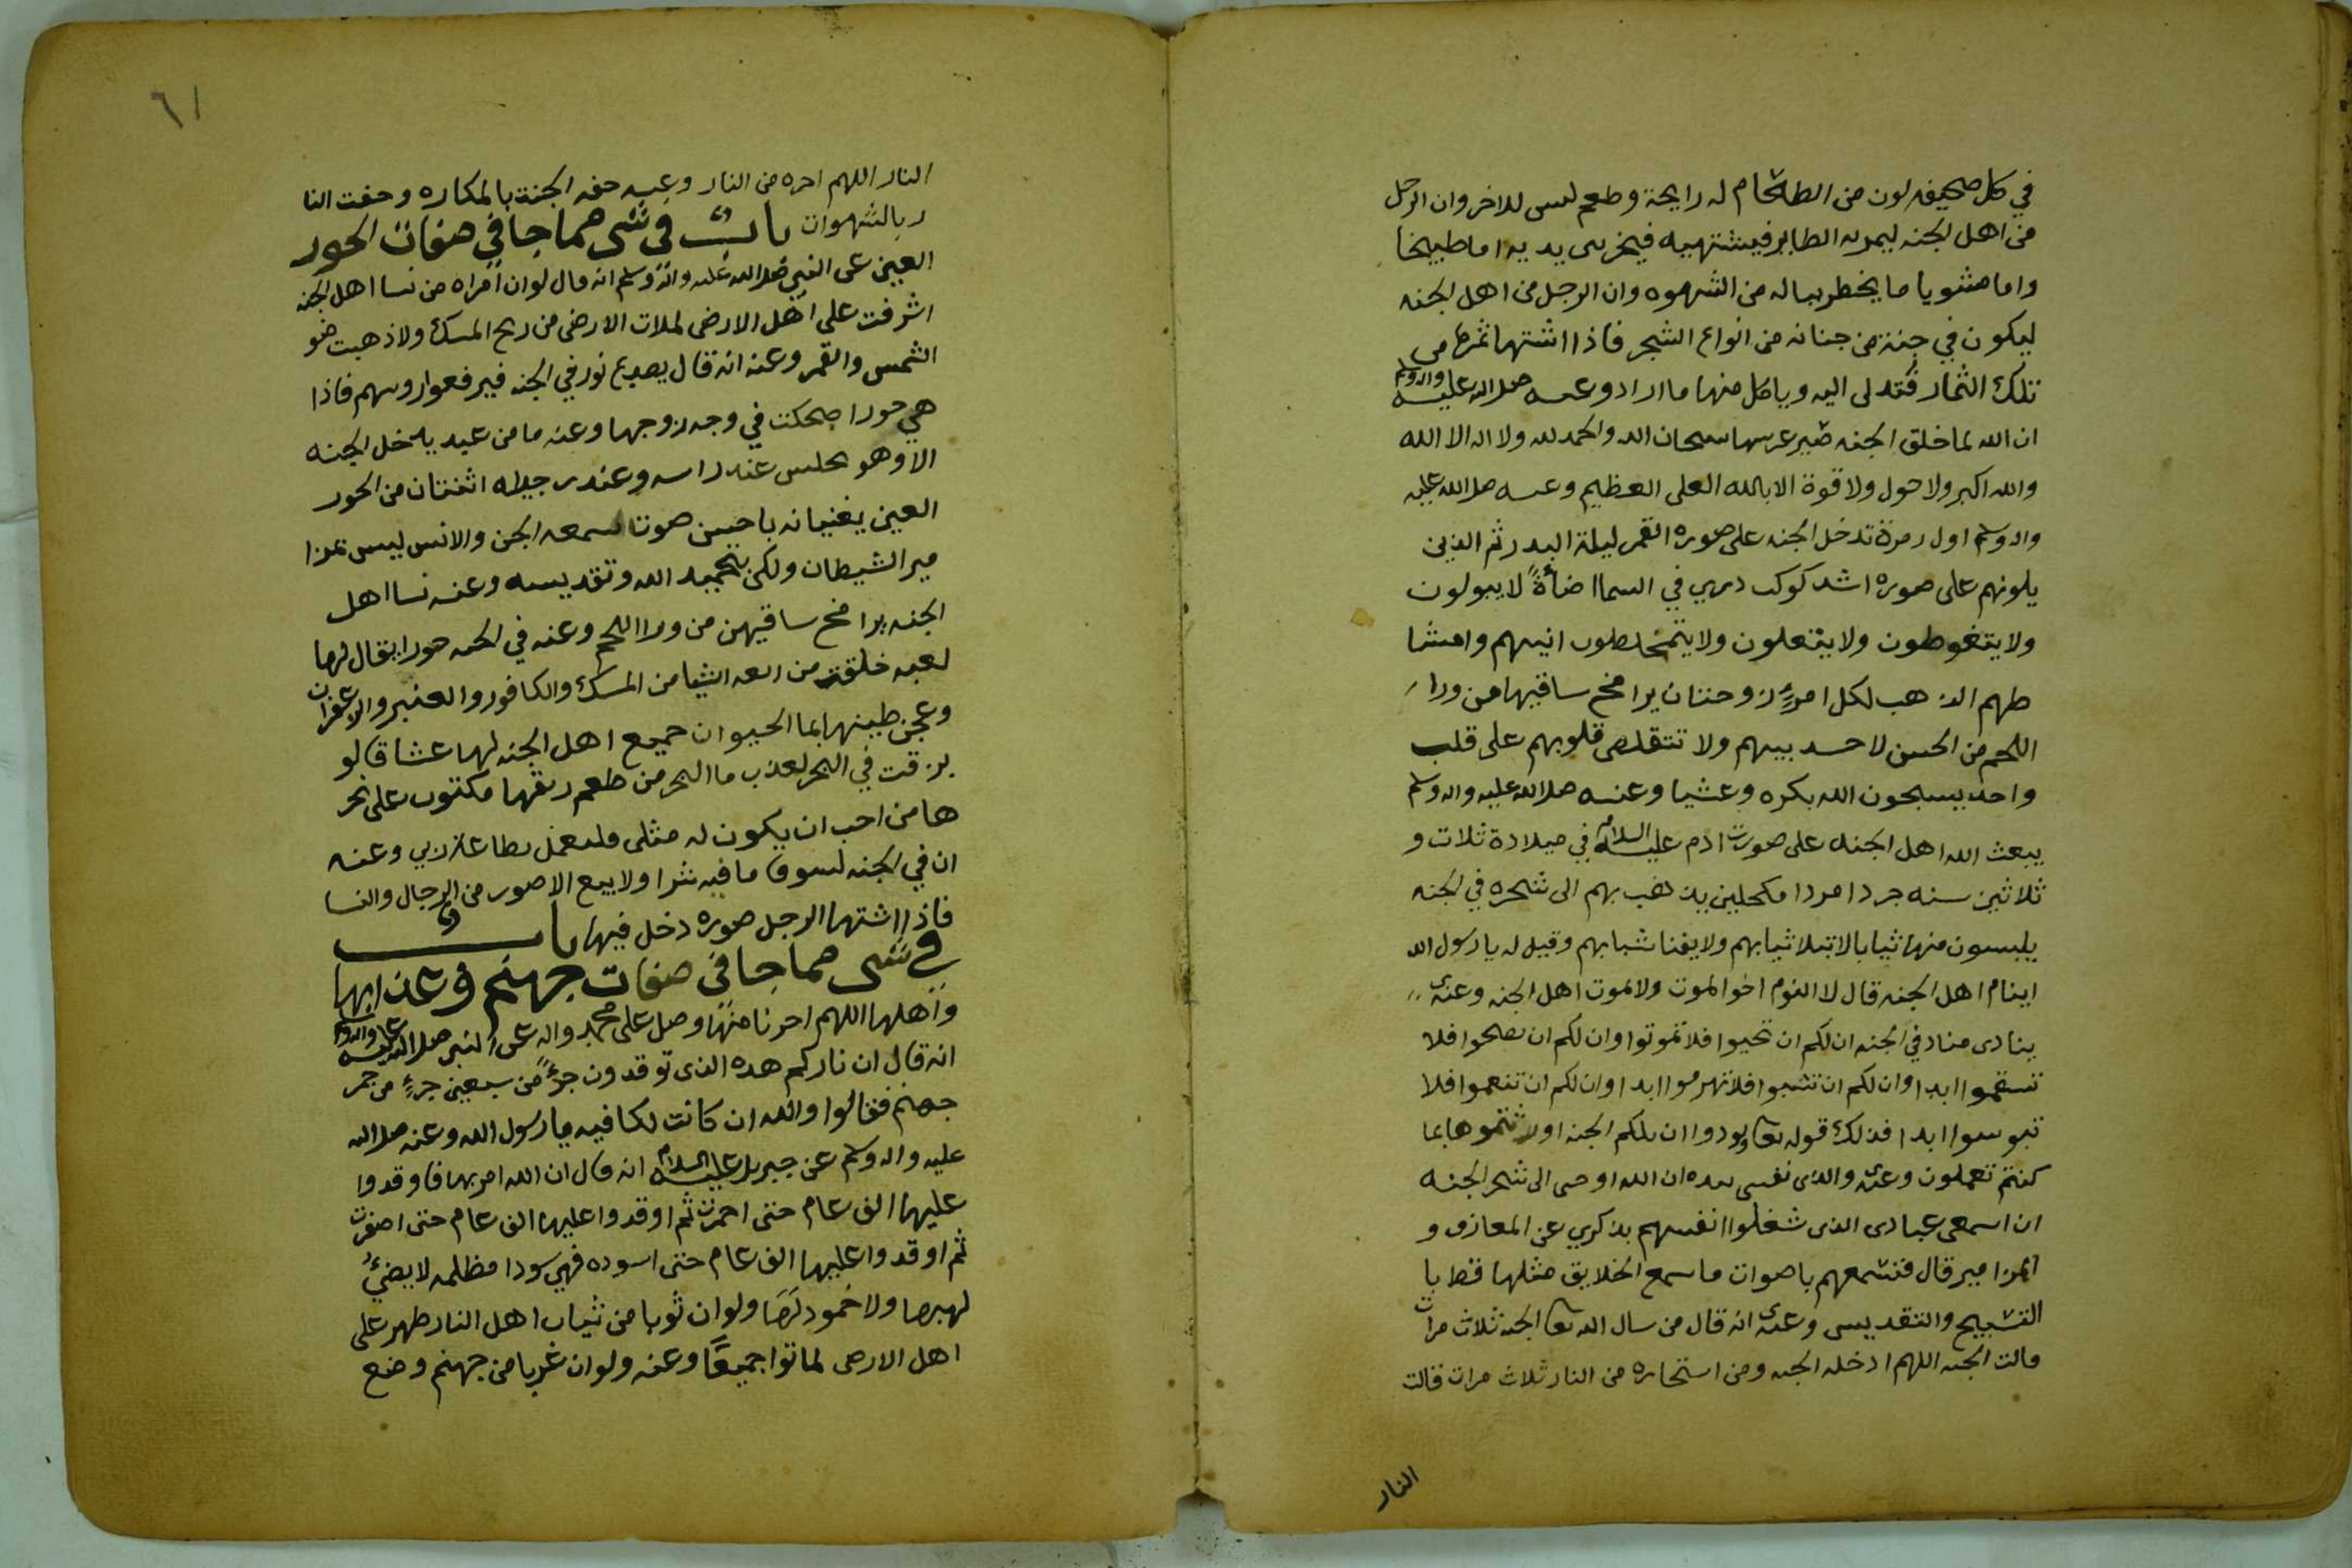 في كل صحيفه لون من الطعام له رايحة وطعم ليس للاخر وان الرجل
من اهل الجنه ليمر به الطاير فيشتهيه فيخر بين يديه اما طبيخا
واما مشويا ما يخطر بباله من الشهوه وان الرجل من اهل الجنه
ليكون في جنة من جنانه من انواع الشجر فاذا اشتها ثمرها من
تلك الثمار فتدلى اليه وياكل منها ما اراد وعنه صلى الله عليه واله وسلم
ان الله لما خلق الجنه صير غرسها سبحان الله والحمد لله ولا اله الا الله
والله اكبر ولا حول ولا قوة الا بالله العلي العظيم وعنه صلى الله عليه
واله وسلم اول زمرة تدخل الجنه على صوره القمر ليلة البدر ثم الذين
يلونهم على صوره اشد كوكب دري في السما اضأةً لا يبولون
ولا يتغوطون ولا يتفلون ولا يتمخطون انيتهم وامشا
طهم الذهب لكل امرءٍ زوجتان يرا مخ ساقيها من ورا
اللحم من الحسن لا حسد بينهم ولا تتقلص قلوبهم على قلب
واحد يسبحون الله بكره وعشيا وعنه صلى الله عليه واله وسلم
يبعث الله اهل الجنه على صورت ادم عليه السلام في ميلادة ثلاث و
ثلاثين سنه جردا مردا مكحلين يذهب بهم الى شجره في الجنه
يلبسون منها ثيابا لا تبلا ثيابهم ولا يفنا شبابهم وقيل له يا رسول الله
اينام اهل الجنه قال لا النوم اخو الموت ولا يموت اهل الجنه وعنه
ينادى مناد في الجنه ان لكم ان تحيوا فلا تموتوا وان لكم ان تصحوا فلا
تسقموا ابدا وان لكم ان تشبوا فلا تهرموا ابدا وان لكم ان تنعموا فلا
تبوسوا ابدا فذلك قوله تعا ونودوا ان تلكم الجنه اورثتموها بما
كنتم تعملون وعنه والذي نفسي بيده ان الله اوحى الى شجر الجنه
ان اسمعي عبادى الذى شغلوا انفسهم بذكري عن المعازف و
المزامير قال فتسمعهم باصوات ما سمع الخلايق مثلها قط با
التسبيح والتقديس وعنه انه قال من سال الله تعا الجنه ثلاث مرات
قالت الجنه اللهم ادخله الجنه ومن استجاره من النار ثلاث مرات قالت
النار
٦١
النار اللهم اجره من النار وعنه حفه الجنة بالمكاره وحفت النا
ر بالشهوات باب في شي مما جا في صفات الحور
العين عن النبي صلى الله عليه واله وسلم انه قال لو ان امراه من نسا اهل الجنه
اشرفت على اهل الارض لملات الارض من ريح المسك ولاذهبت ضو
الشمس والقمر وعنه انه قال يصدع نور في الجنه فيرفعوا روسهم فاذا
هي حورا ضحكت في وجه زوجها وعنه ما من عبد يدخل الجنه
الا وهو يجلس عند راسه وعند رجيله اثنتان من الحور
العين يغنيانه باحسن صوت سمعه الجن والانس ليس بمزا
مير الشيطان ولكن بتحميد الله وتقديسه وعنه نسا اهل
الجنه يرا مخ ساقيهن من ورا اللحم وعنه في الجنه حورا يقال لها
لعبه خلقت من اربعه اشيا من المسك والكافور والعنبر والزعفران
وعجن طينها بما الحيوان جميع اهل الجنه لها عشاق لو
بزقت في البحر لعذب ما البحر من طعم ريقها مكتوب على نحر
ها من احب ان يكون له مثلي فليعمل بطاعة ربي وعنه
ان في الجنه لسوق ما فيه شرا ولا بيع الا صور من الرجال والنسا
فاذا اشتها الرجل صوره دخل فيها باب
في شي مما جا في صفات جهنم وعذابها
واهلها اللهم اجرنا منها وصل على محمد واله عن النبي صلى الله عليه واله وسلم
انه قال ان ناركم هذه الذي توقدون جزءٌ من سبعين جزءٍ من جمر
جهنم فقالوا والله ان كانت لكافيه يا رسول الله وعنه صلى الله
عليه واله وسلم عن جبريل عليه السلام انه قال ان الله امر بها فاوقدوا
عليها الف عام حتى احمرت ثم اوقدوا عليها الف عام حتى اصفرت
ثم اوقدوا عليها الف عام حتى اسوده فهي سودا مظلمه لا يضيءُ
لهبها ولا خمود لها ولو ان ثوبا من ثياب اهل النار ظهر على
اهل الارض لماتوا جميعًا وعنه ولو ان غربا من جهنم وضع